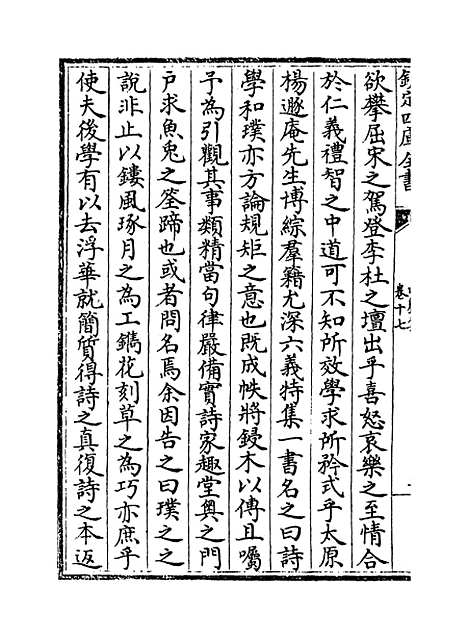 欽定四庫全書
卷十七
欲攀屈宋之駕登李杜之壇出乎喜怒哀樂之至情合
於仁義禮智之中道可不知所效學求所矜式乎太原
楊遯庵先生博綜羣籍尤深六義特集一書名之曰詩
學和璞亦方論規矩之意也既成帙將鋟木以傳且囑
予為引觀其事類精當句律嚴備實詩家趣堂奧之門
户求魚兎之筌蹄也或者問名焉余因告之曰璞之之
說非止以鏤風琢月之為工鐫花刻草之為巧亦庶乎
使夫後學有以去浮華就簡質得詩之真復詩之本返